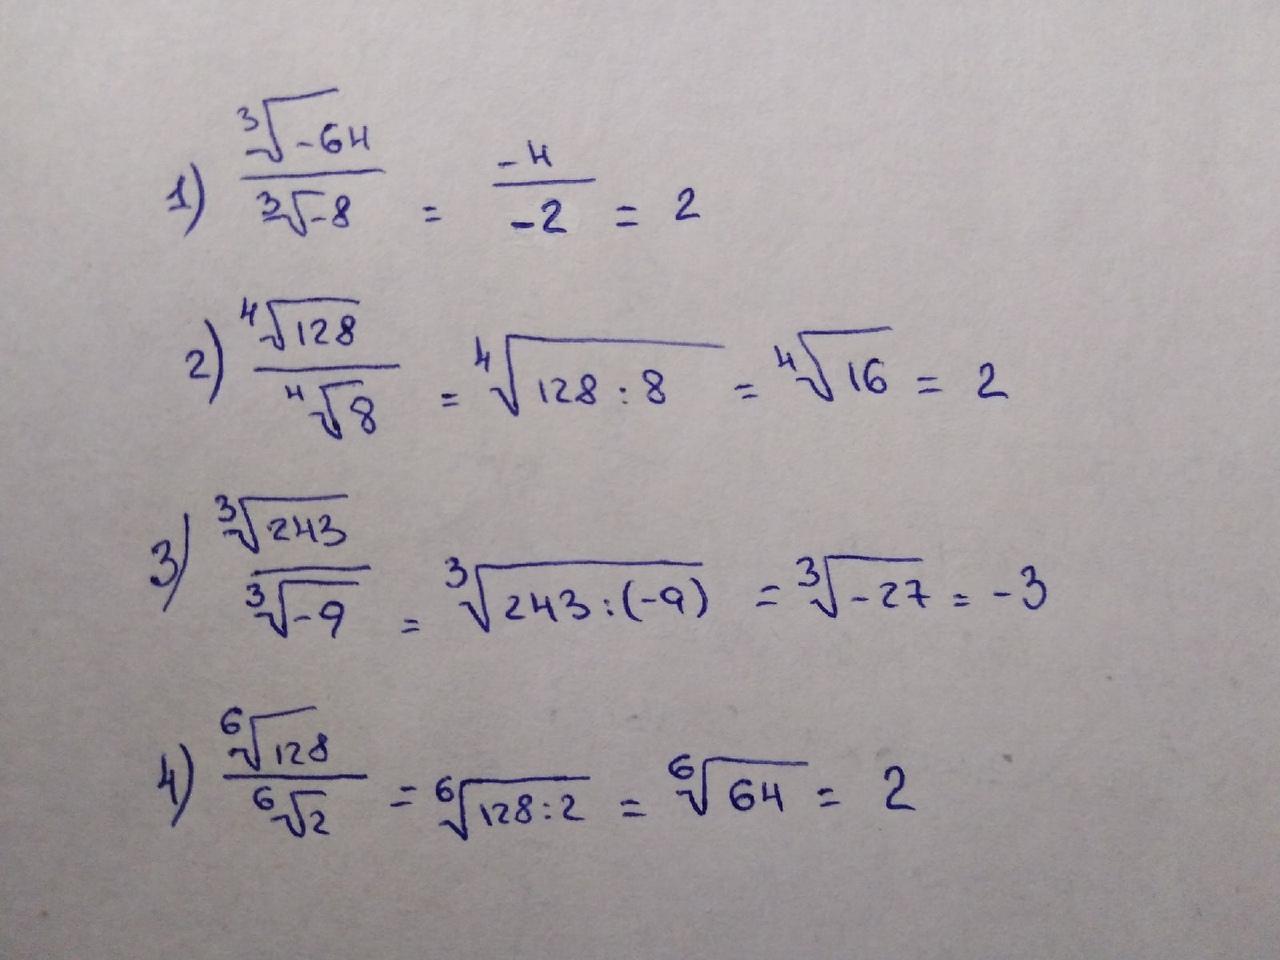 1) ∛-64 / ∛-8 = -4 / -2 = 2
2) ∜128 / ∜8 = ∜128 : 8 = ∜16 = 2
3) ∛243 / ∛-9 = ∛243 : (-9) = ∛-27 = -3
4) ⁶√128 / ⁶√2 = ⁶√128 : 2 = ⁶√64 = 2